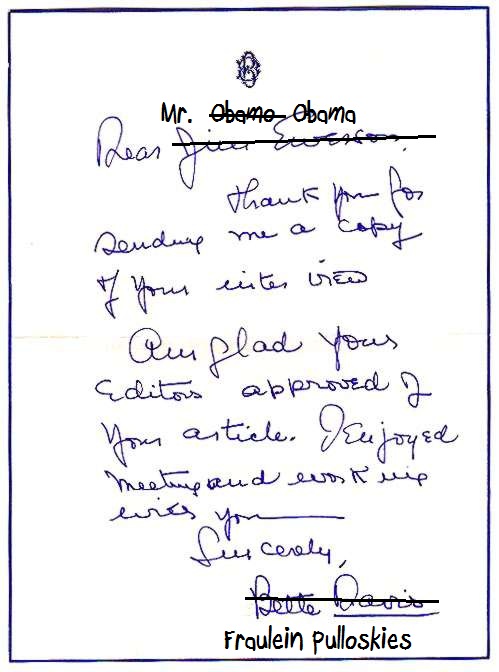 Mr. Obamo Obama
Dear Jim
Thank you for
sending me a copy
of your inter view
Am glad your
Editors approved of
your article. I Enjoyed
meeting and work ing
with you
Sincerely,
Bette Davis
Fraulein Pulloskies